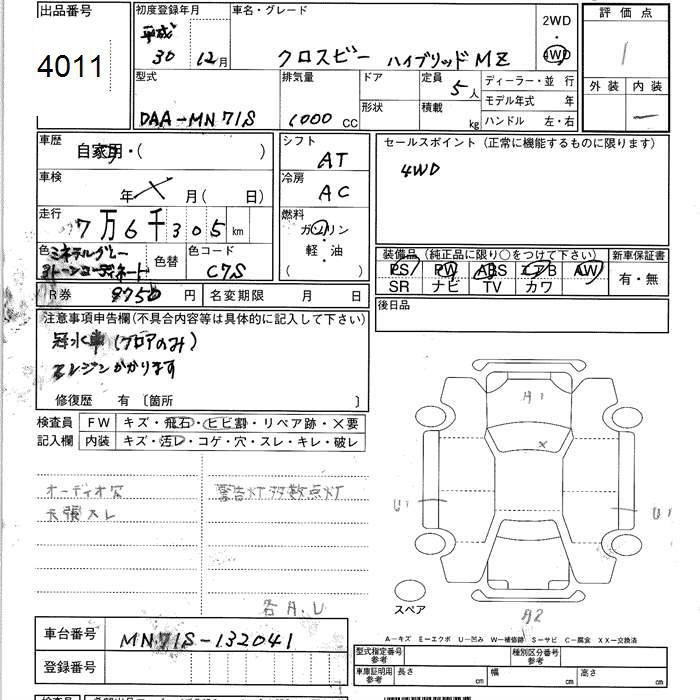 出品番号
4011
初度登録年月
平成
30 12月
車名・グレード
クロスビー ハイブリッドMZ
2WD
4WD
評価点
1
外装 内装
型式
DAA-MN71S
排気量
1000 CC
ドア
形状
定員
5人
積載
kg
ディーラー・並 行
モデル年式 年
ハンドル 左・右
車歴
自家用・( )
車検
年 月(日)
走行
7万6千305km
色
ミネラルグレー
2トーンコーディネート
色替
色コード
C7S
シフト
AT
冷房
AC
燃料
ガソリン
軽・油
( )
セールスポイント(正常に機能するものに限ります)
4WD
装備品(純正品に限り○をつけて下さい)
PS PW ABS エアB AW
SR ナビ TV カワ
新車保証書
有・無
後日品
R券 9750円
名変期限 月 日
注意事項申告欄(不具合内容等は具体的に記入して下さい)
冠水車(フロアのみ)
エンジンかかります
修復歴 有〔箇所 〕
検査員
記入欄
FW キズ・飛石・ヒビ割・リペア跡・×要
内装 キズ・汚レ・コゲ・穴・スレ・キレ・破レ
オーディオ欠
天張スレ
警告灯多数点灯
各A.U
A1
×
U1
U1
A2
スペア
A-キズ E-エクボ U-凹み W-補修跡 S-サビ C-腐食 XX-交換済
車台番号
MN71S-132041
登録番号
型式指定番号
参考
種別区分番号
参考
車庫証明用
参考
長さ cm
幅 cm
高さ cm